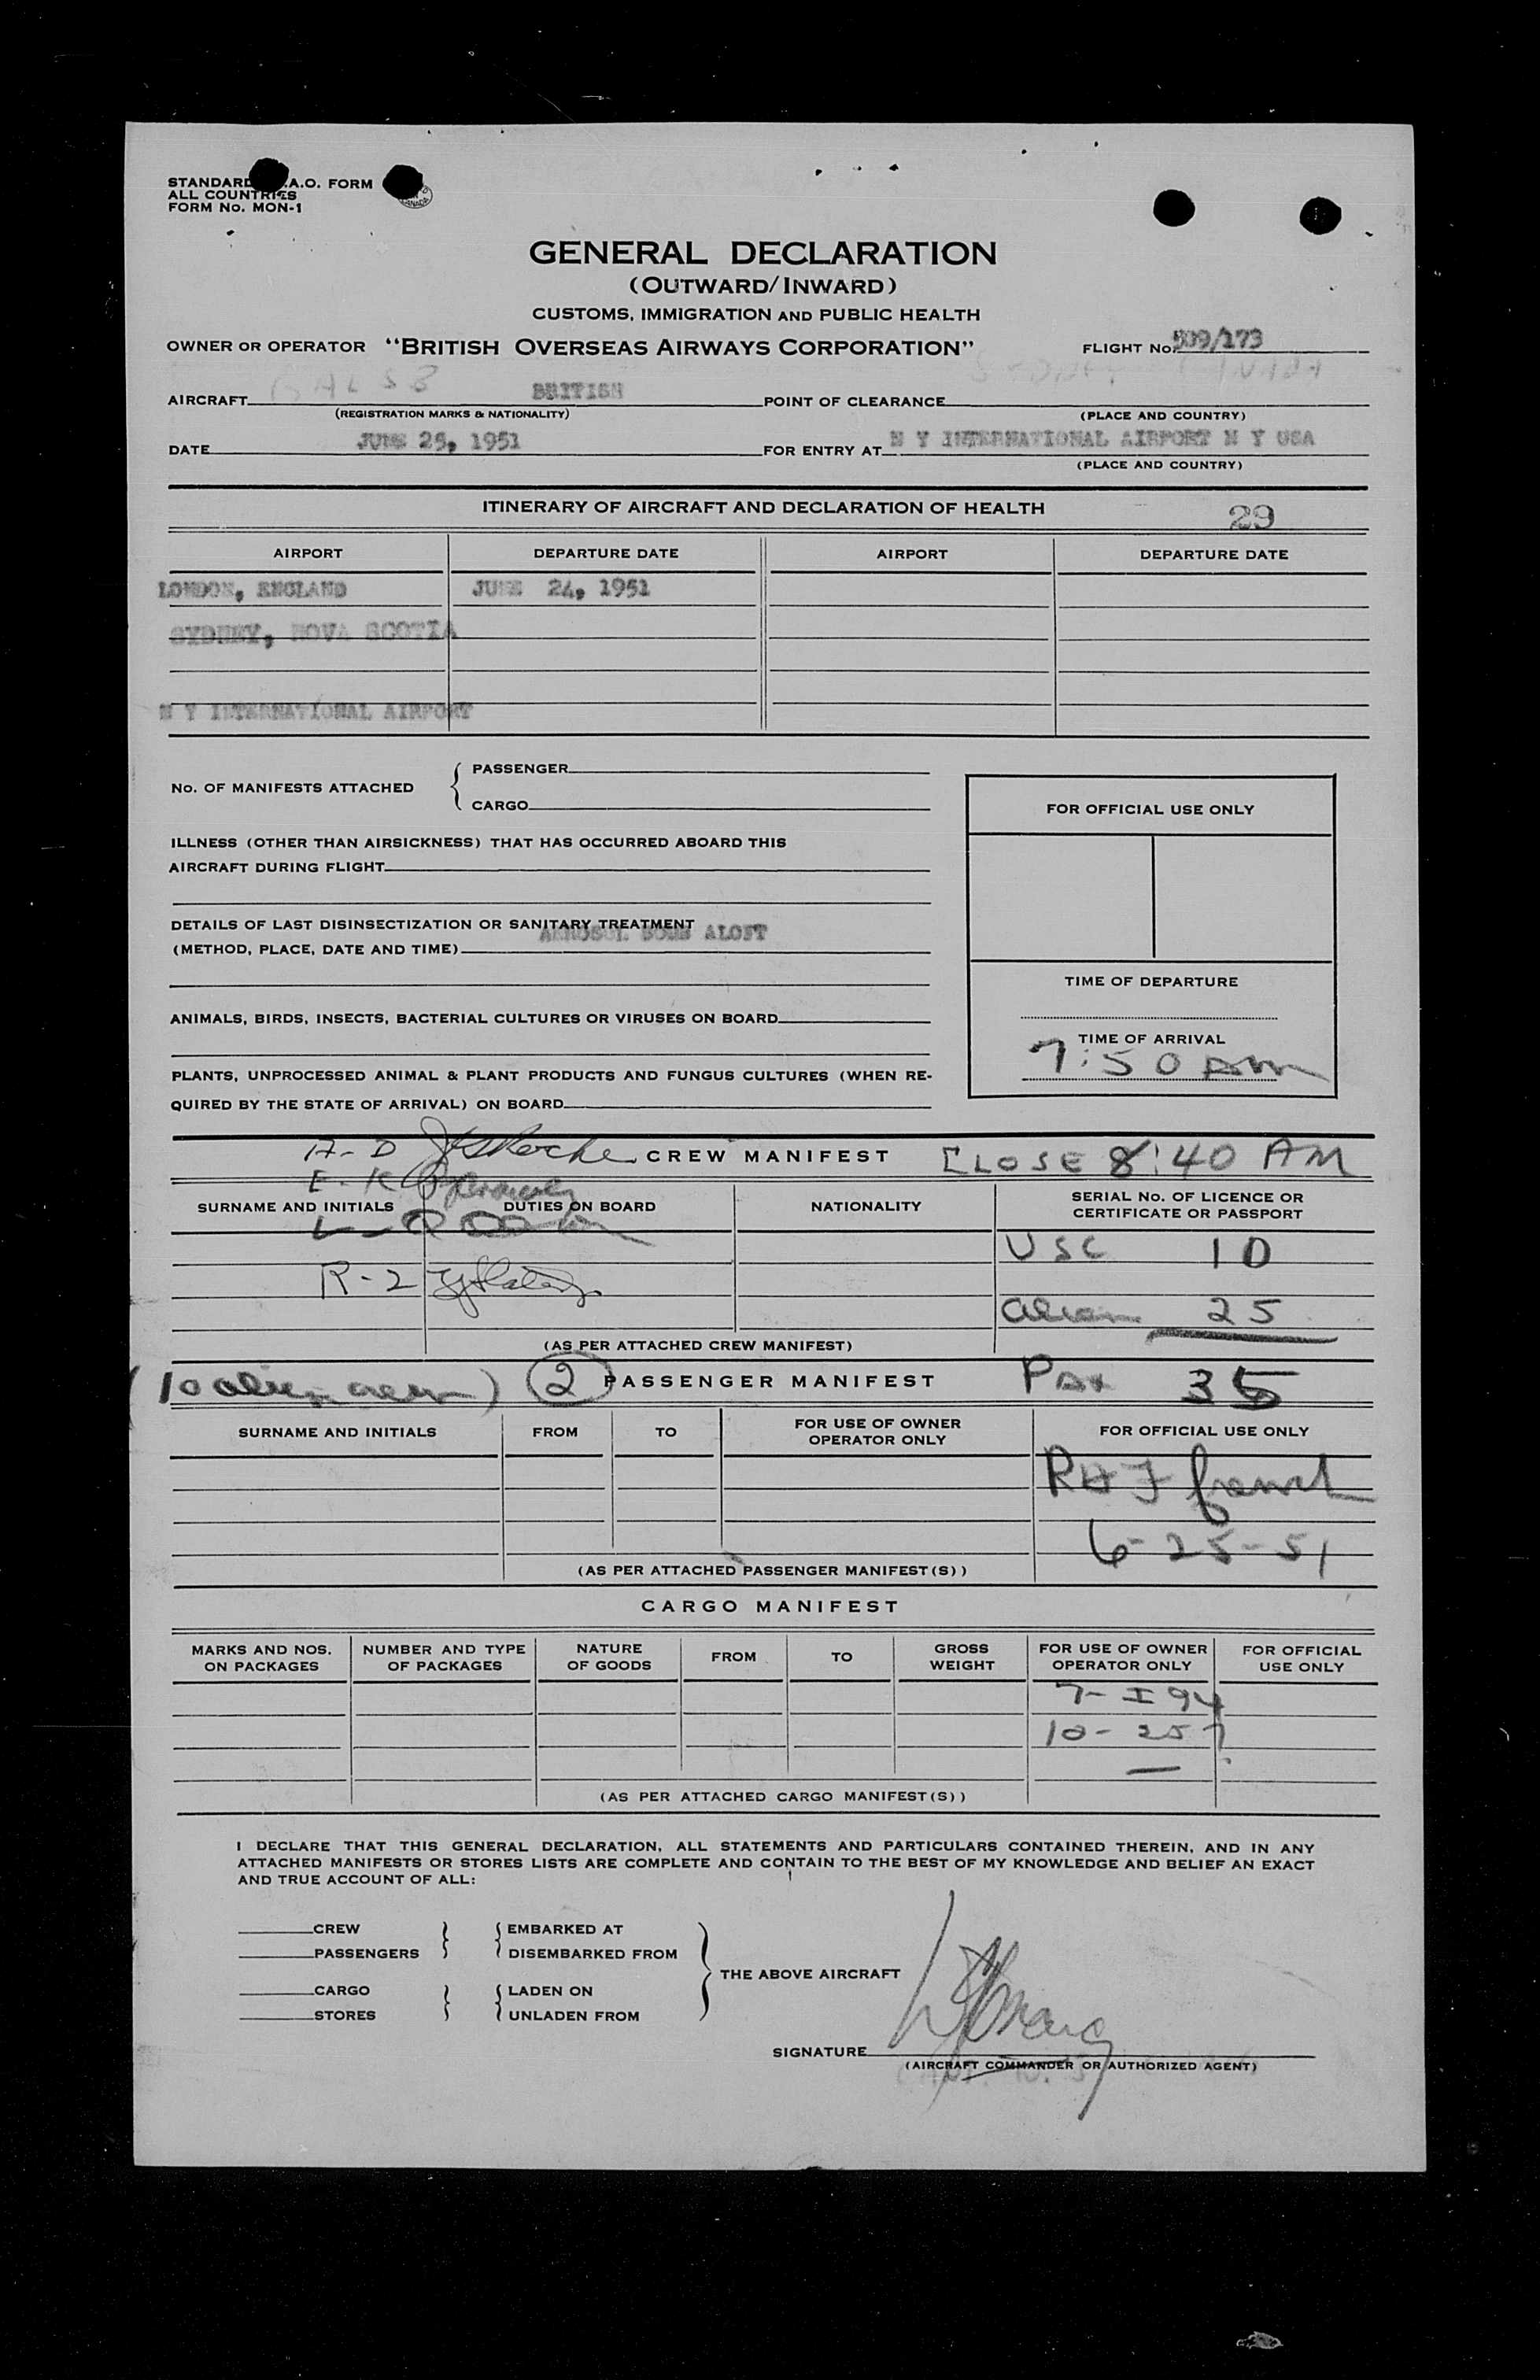 STANDARD A.O. FORM
ALL COUNTRIES
FORM No. MON-1
GENERAL DECLARATION
(OUTWARD/INWARD)
CUSTOMS, IMMIGRATION AND PUBLIC HEALTH
OWNER OR OPERATOR "BRITISH OVERSEAS AIRWAYS CORPORATION" FLIGHT No. 509/173
AIRCRAFT BRITISH POINT OF CLEARANCE SYDNEY CANADA
(REGISTRATION MARKS & NATIONALITY) (PLACE AND COUNTRY)
DATE JUNE 25, 1951 FOR ENTRY AT N Y INTERNATIONAL AIRPORT N Y USA
(PLACE AND COUNTRY)
ITINERARY OF AIRCRAFT AND DECLARATION OF HEALTH 29
AIRPORT DEPARTURE DATE AIRPORT DEPARTURE DATE
LONDON, ENGLAND JUNE 24, 1951
SYDNEY, NOVA SCOTIA
N Y INTERNATIONAL AIRPORT
No. OF MANIFESTS ATTACHED PASSENGER
CARGO
FOR OFFICIAL USE ONLY
ILLNESS (OTHER THAN AIRSICKNESS) THAT HAS OCCURRED ABOARD THIS
AIRCRAFT DURING FLIGHT
DETAILS OF LAST DISINSECTIZATION OR SANITARY TREATMENT
AEROSOL BOMB ALOFT
(METHOD, PLACE, DATE AND TIME)
TIME OF DEPARTURE
ANIMALS, BIRDS, INSECTS, BACTERIAL CULTURES OR VIRUSES ON BOARD
TIME OF ARRIVAL
7:50 AM
PLANTS, UNPROCESSED ANIMAL & PLANT PRODUCTS AND FUNGUS CULTURES (WHEN RE-
QUIRED BY THE STATE OF ARRIVAL) ON BOARD
A-D CREW MANIFEST CLOSE 8:40 AM
E-K
SURNAME AND INITIALS DUTIES ON BOARD NATIONALITY SERIAL No. OF LICENCE OR
CERTIFICATE OR PASSPORT
L-Q
USC 10
R-Z
alien 25
(AS PER ATTACHED CREW MANIFEST)
(10 alien crew) 2 PASSENGER MANIFEST Pax 35
SURNAME AND INITIALS FROM TO FOR USE OF OWNER
OPERATOR ONLY FOR OFFICIAL USE ONLY
6-25-51
(AS PER ATTACHED PASSENGER MANIFEST(S))
CARGO MANIFEST
MARKS AND NOS.
ON PACKAGES NUMBER AND TYPE
OF PACKAGES NATURE
OF GOODS FROM TO GROSS
WEIGHT FOR USE OF OWNER
OPERATOR ONLY FOR OFFICIAL
USE ONLY
7- I 94
10- 257
(AS PER ATTACHED CARGO MANIFEST(S))
I DECLARE THAT THIS GENERAL DECLARATION, ALL STATEMENTS AND PARTICULARS CONTAINED THEREIN, AND IN ANY
ATTACHED MANIFESTS OR STORES LISTS ARE COMPLETE AND CONTAIN TO THE BEST OF MY KNOWLEDGE AND BELIEF AN EXACT
AND TRUE ACCOUNT OF ALL:
CREW EMBARKED AT
PASSENGERS DISEMBARKED FROM
THE ABOVE AIRCRAFT
CARGO LADEN ON
STORES UNLADEN FROM
SIGNATURE
(AIRCRAFT COMMANDER OR AUTHORIZED AGENT)